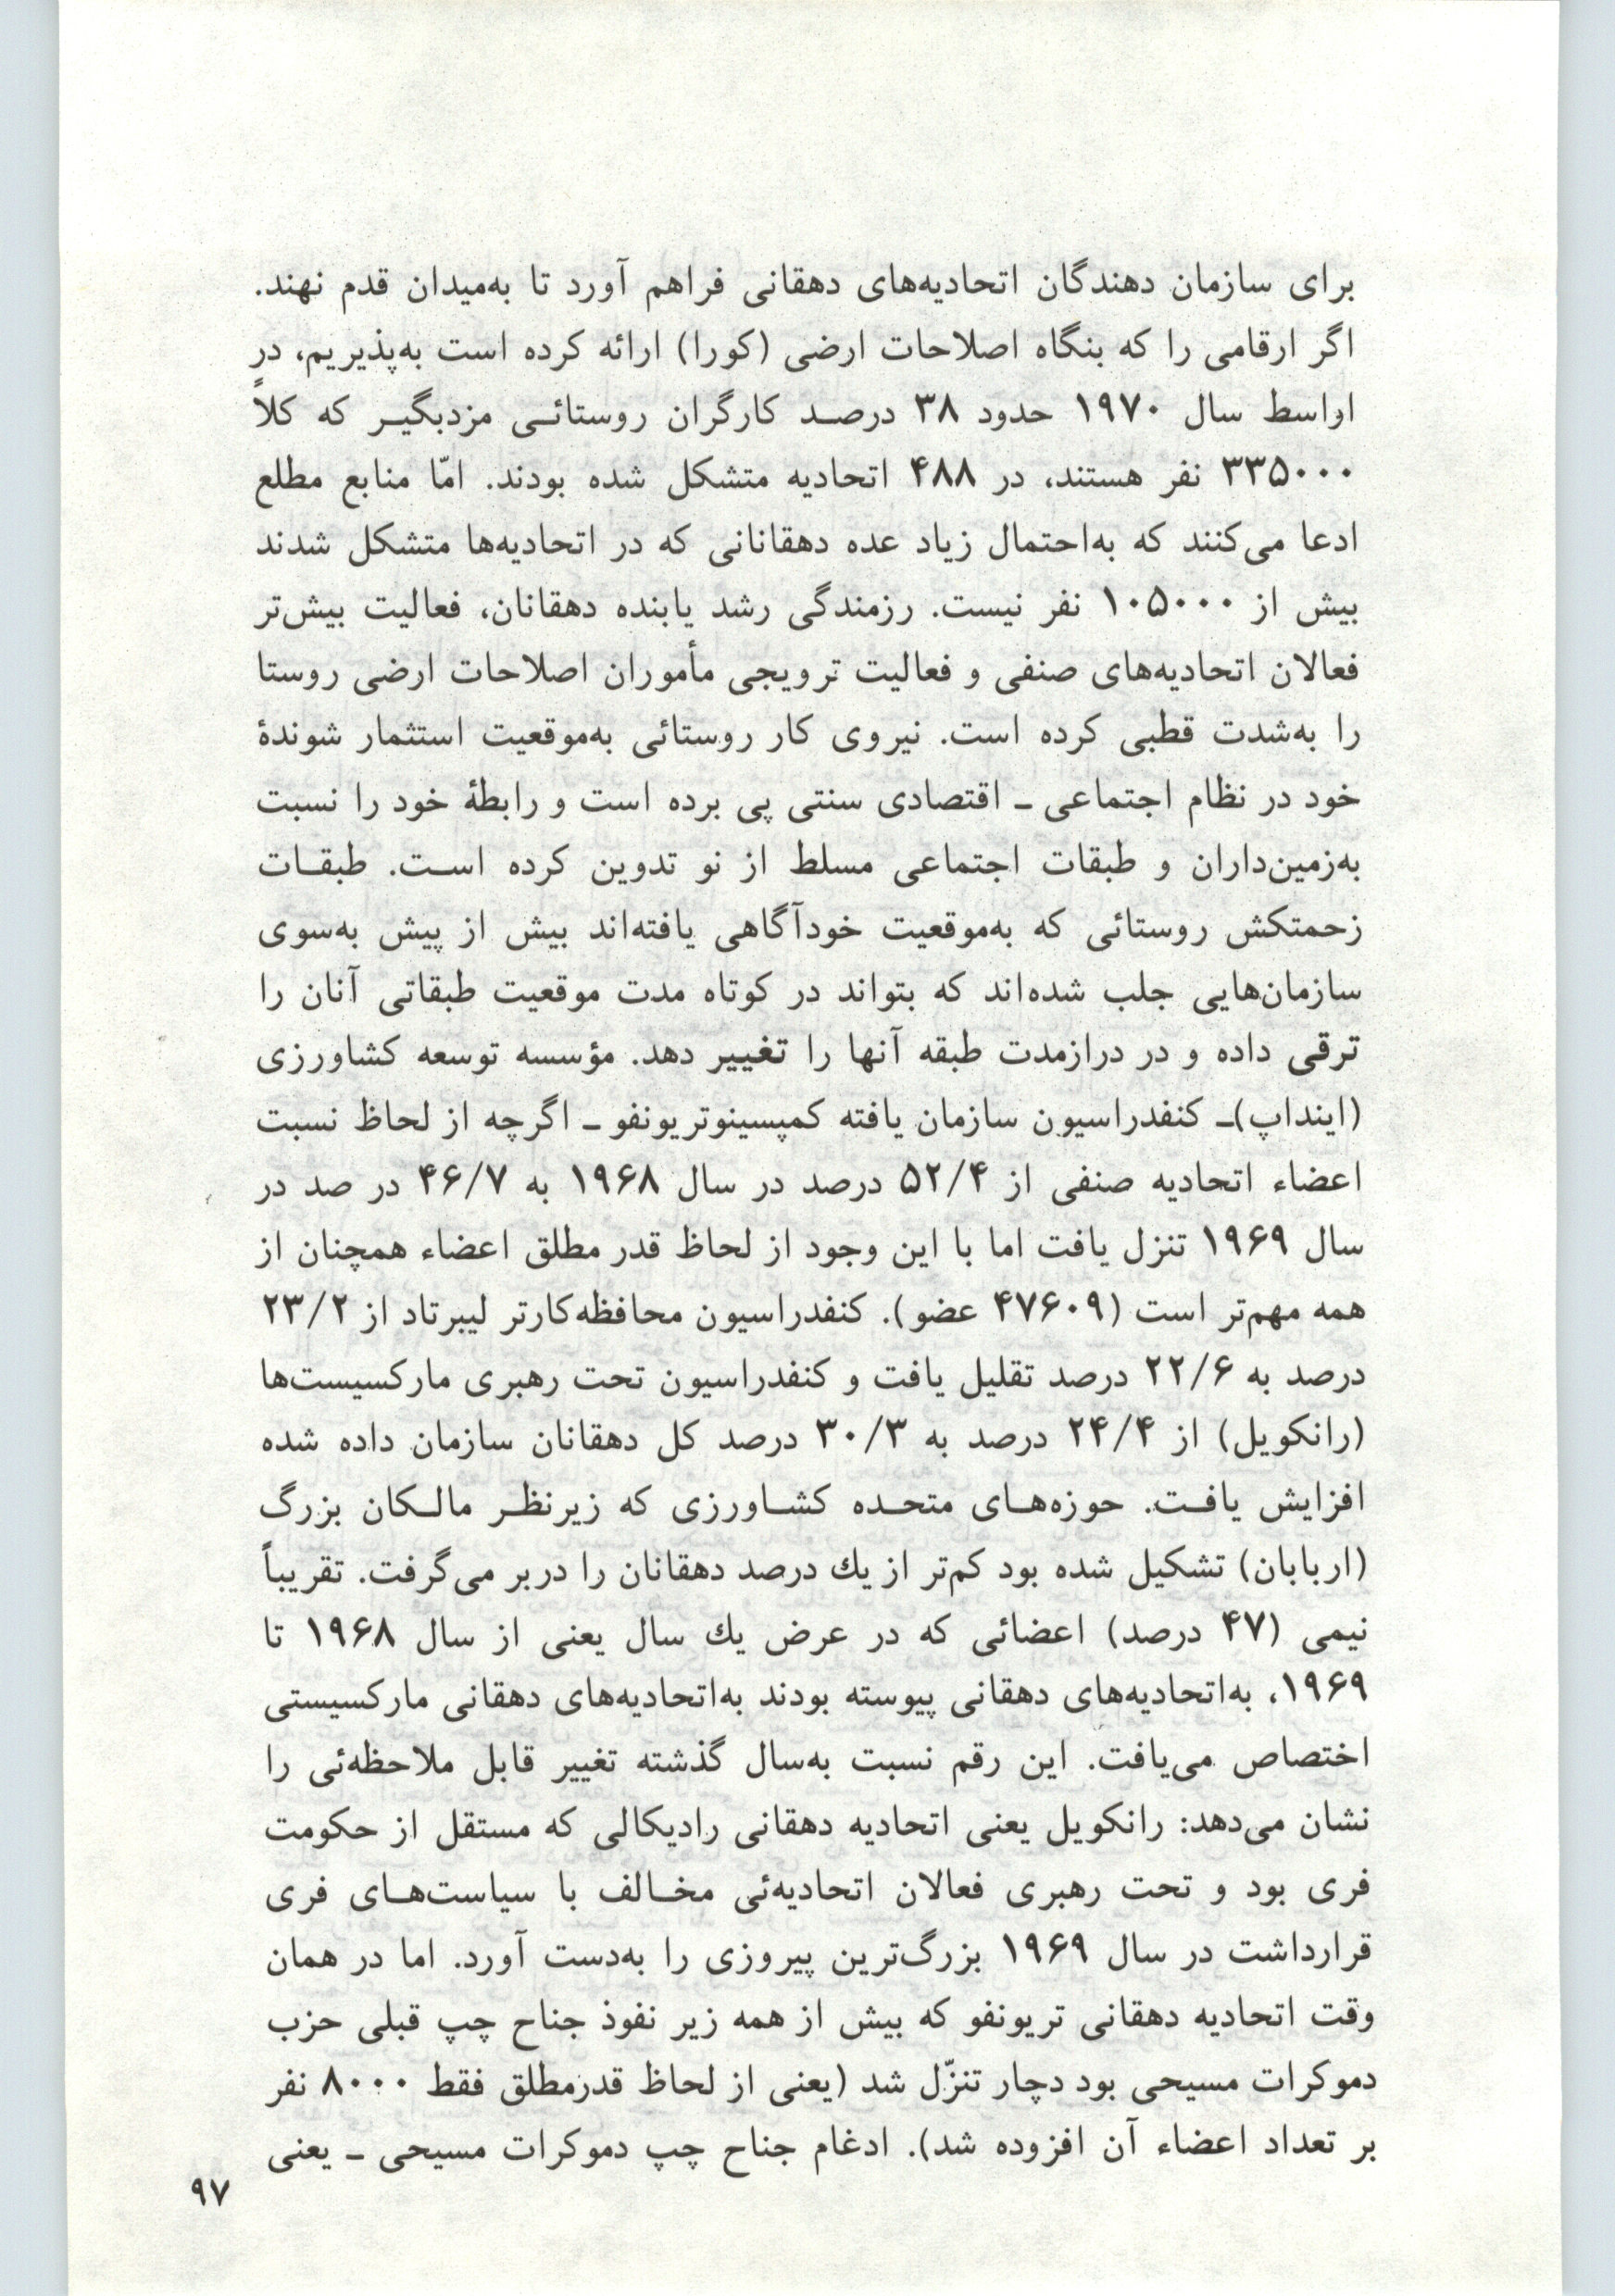 برای سازمان دهندگان اتحادیه‌های دهقانی فراهم آورد تا به‌میدان قدم نهند.
اگر ارقامی را که بنگاه اصلاحات ارضی (کورا) ارائه کرده است به‌پذیریم، در
اواسط سال ۱۹۷۰ حدود ۳۸ درصد کارگران روستائی مزدبگیر که کلاً
۳۳۵۰۰۰ نفر هستند، در ۴۸۸ اتحادیه متشکل شده بودند. امّا منابع مطلع
ادعا می‌کنند که به‌احتمال زیاد عده دهقانانی که در اتحادیه‌ها متشکل شدند
بیش از ۱۰۵۰۰۰ نفر نیست. رزمندگی رشد یابنده دهقانان، فعالیت بیش‌تر
فعالان اتحادیه‌های صنفی و فعالیت ترویجی مأموران اصلاحات ارضی روستا
را به‌شدت قطبی کرده است. نیروی کار روستائی به‌موقعیت استثمار شوندهٔ
خود در نظام اجتماعی ـ اقتصادی سنتی پی برده است و رابطهٔ خود را نسبت
به‌زمین‌داران و طبقات اجتماعی مسلط از نو تدوین کرده است. طبقات
زحمتکش روستائی که به‌موقعیت خودآگاهی یافته‌اند بیش از پیش به‌سوی
سازمان‌هایی جلب شده‌اند که بتواند در کوتاه مدت موقعیت طبقاتی آنان را
ترقی داده و در درازمدت طبقه آنها را تغییر دهد. مؤسسه توسعه کشاورزی
(اینداپ)ـ کنفدراسیون سازمان یافته کمپسینوتریونفو ـ اگرچه از لحاظ نسبت
اعضاء اتحادیه صنفی از ۵۲/۴ درصد در سال ۱۹۶۸ به ۴۶/۷ در صد در
سال ۱۹۶۹ تنزل یافت اما با این وجود از لحاظ قدر مطلق اعضاء همچنان از
همه مهم‌تر است (۴۷۶۰۹ عضو). کنفدراسیون محافظه‌کارتر لیبرتاد از ۲۳/۲
درصد به ۲۲/۶ درصد تقلیل یافت و کنفدراسیون تحت رهبری مارکسیست‌ها
(رانکویل) از ۲۴/۴ درصد به ۳۰/۳ درصد کل دهقانان سازمان داده شده
افزایش یافت. حوزه‌های متحده کشاورزی که زیرنظر مالکان بزرگ
(اربابان) تشکیل شده بود کم‌تر از یك درصد دهقانان را دربر می‌گرفت. تقریباً
نیمی (۴۷ درصد) اعضائی که در عرض یك سال یعنی از سال ۱۹۶۸ تا
۱۹۶۹، به‌اتحادیه‌های دهقانی پیوسته بودند به‌اتحادیه‌های دهقانی مارکسیستی
اختصاص می‌یافت. این رقم نسبت به‌سال گذشته تغییر قابل ملاحظه‌ئی را
نشان می‌دهد: رانکویل یعنی اتحادیه دهقانی رادیکالی که مستقل از حکومت
فری بود و تحت رهبری فعالان اتحادیه‌ئی مخالف با سیاست‌های فری
قرارداشت در سال ۱۹۶۹ بزرگ‌ترین پیروزی را به‌دست آورد. اما در همان
وقت اتحادیه دهقانی تریونفو که بیش از همه زیر نفوذ جناح چپ قبلی حزب
دموکرات مسیحی بود دچار تنزّل شد (یعنی از لحاظ قدرمطلق فقط ۸۰۰۰ نفر
بر تعداد اعضاء آن افزوده شد). ادغام جناح چپ دموکرات مسیحی ـ یعنی
۹۷